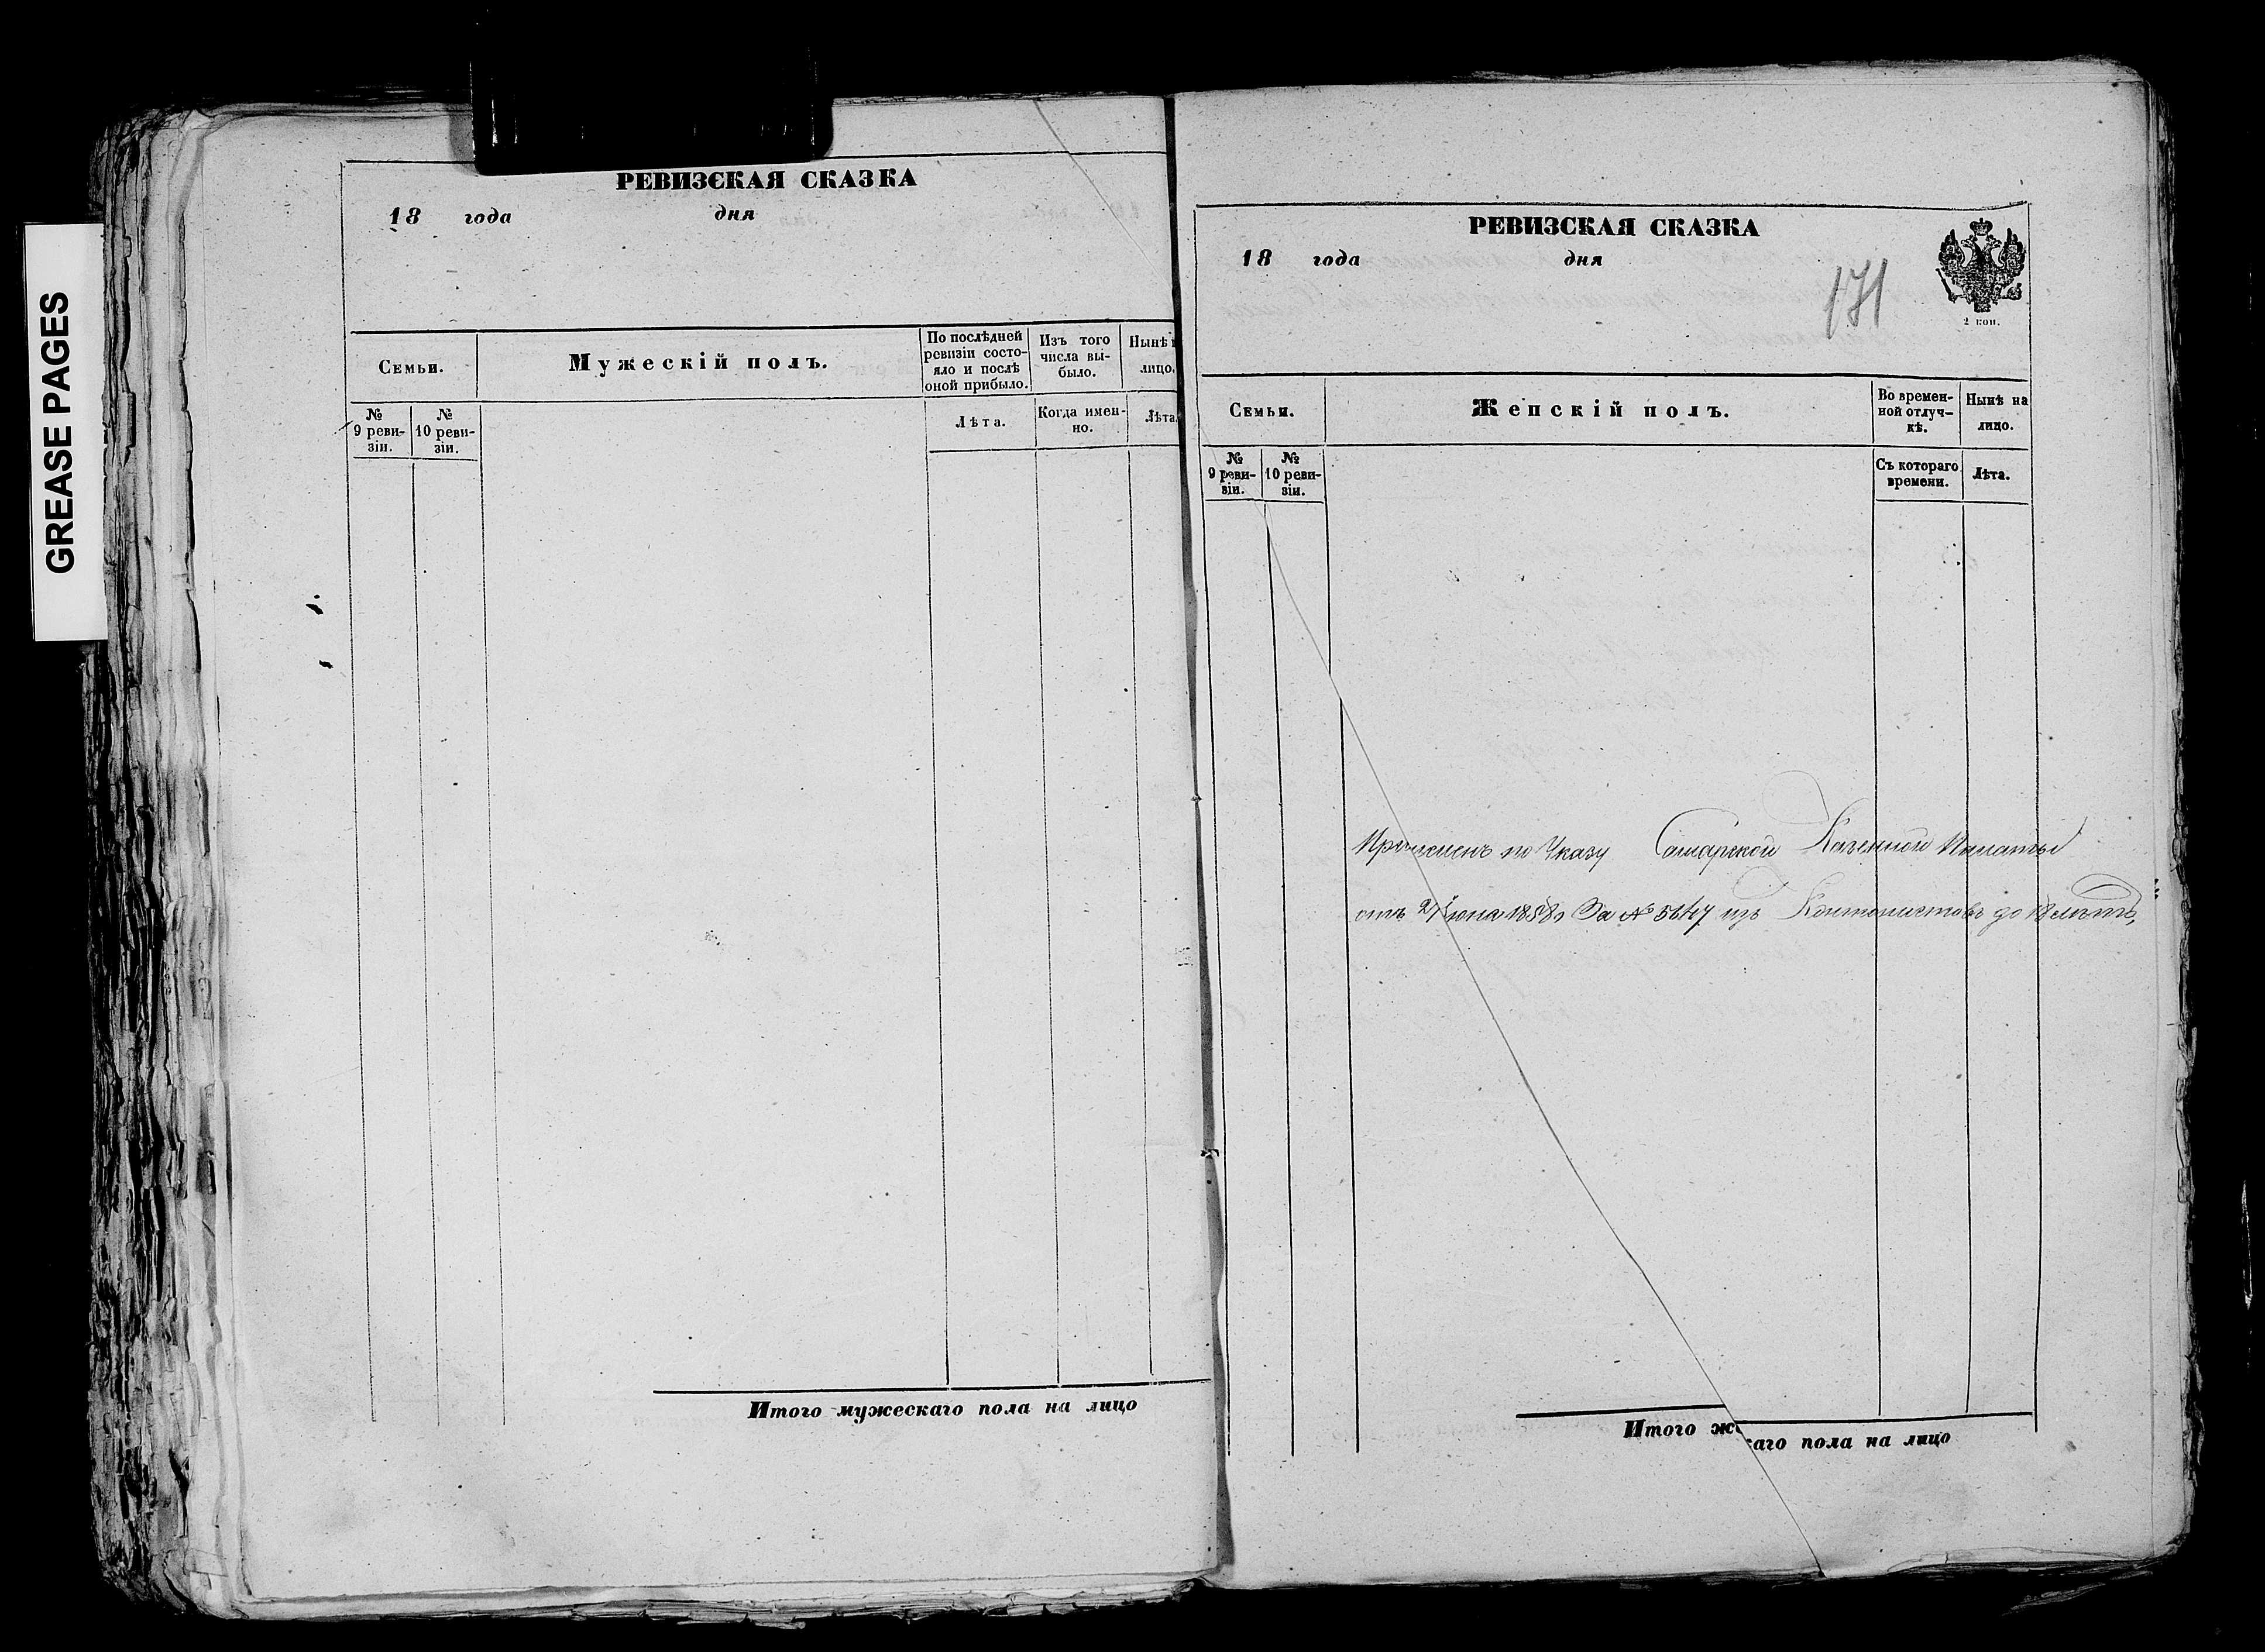 GREASE PAGES
РЕВИЗСКАЯ СКАЗКА
18 года дня
Семьи.
Мужескій полъ.
По послѣдней ревизіи состо-
яло и послѣ
оной прибыло.
Изъ того
числа вы-
было.
Нынѣ
лицо.
№
9 реви-
зіи.
№
10 реви-
зіи.
Лѣта.
Когда имен-
но.
Лѣта
Итого мужескаго пола на лицо
РЕВИЗСКАЯ СКАЗКА
18 года дня
171
2 коп.
Семьи.
Женскій полъ.
Во времен-
ной отлуч-
кѣ.
Нынѣ на
лицо.
№
9 реви-
зіи.
№
10 реви-
зіи.
Съ котораго
времени.
Лѣта.
по Указу Самарской Казенной Палаты
отъ Іюня 1858 За № 5647 изъ Кантонистовъ до 18 лѣтъ
Итого же
каго пола на лицо